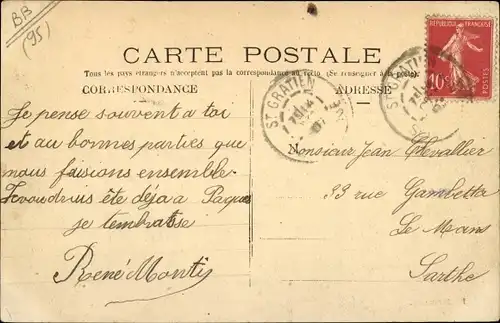 BB
(95)
RÉPUBLIQUE FRANÇAISE
10c
POSTES
CARTE POSTALE
Tous les pays étrangers n'acceptent pas la correspondance au recto (Se renseigner à la poste).
CORRESPONDANCE
ADRESSE
ST GRATIEN
ST GRATIEN
Je pense souvent a toi
et au bonnes parties que
nous faisions ensemble.
Je voudraisête déja a Paques
je tembrasse
René Monti
Monsieur Jean Chevallier
33 rue Gambetta
Le Mans
Sarthe